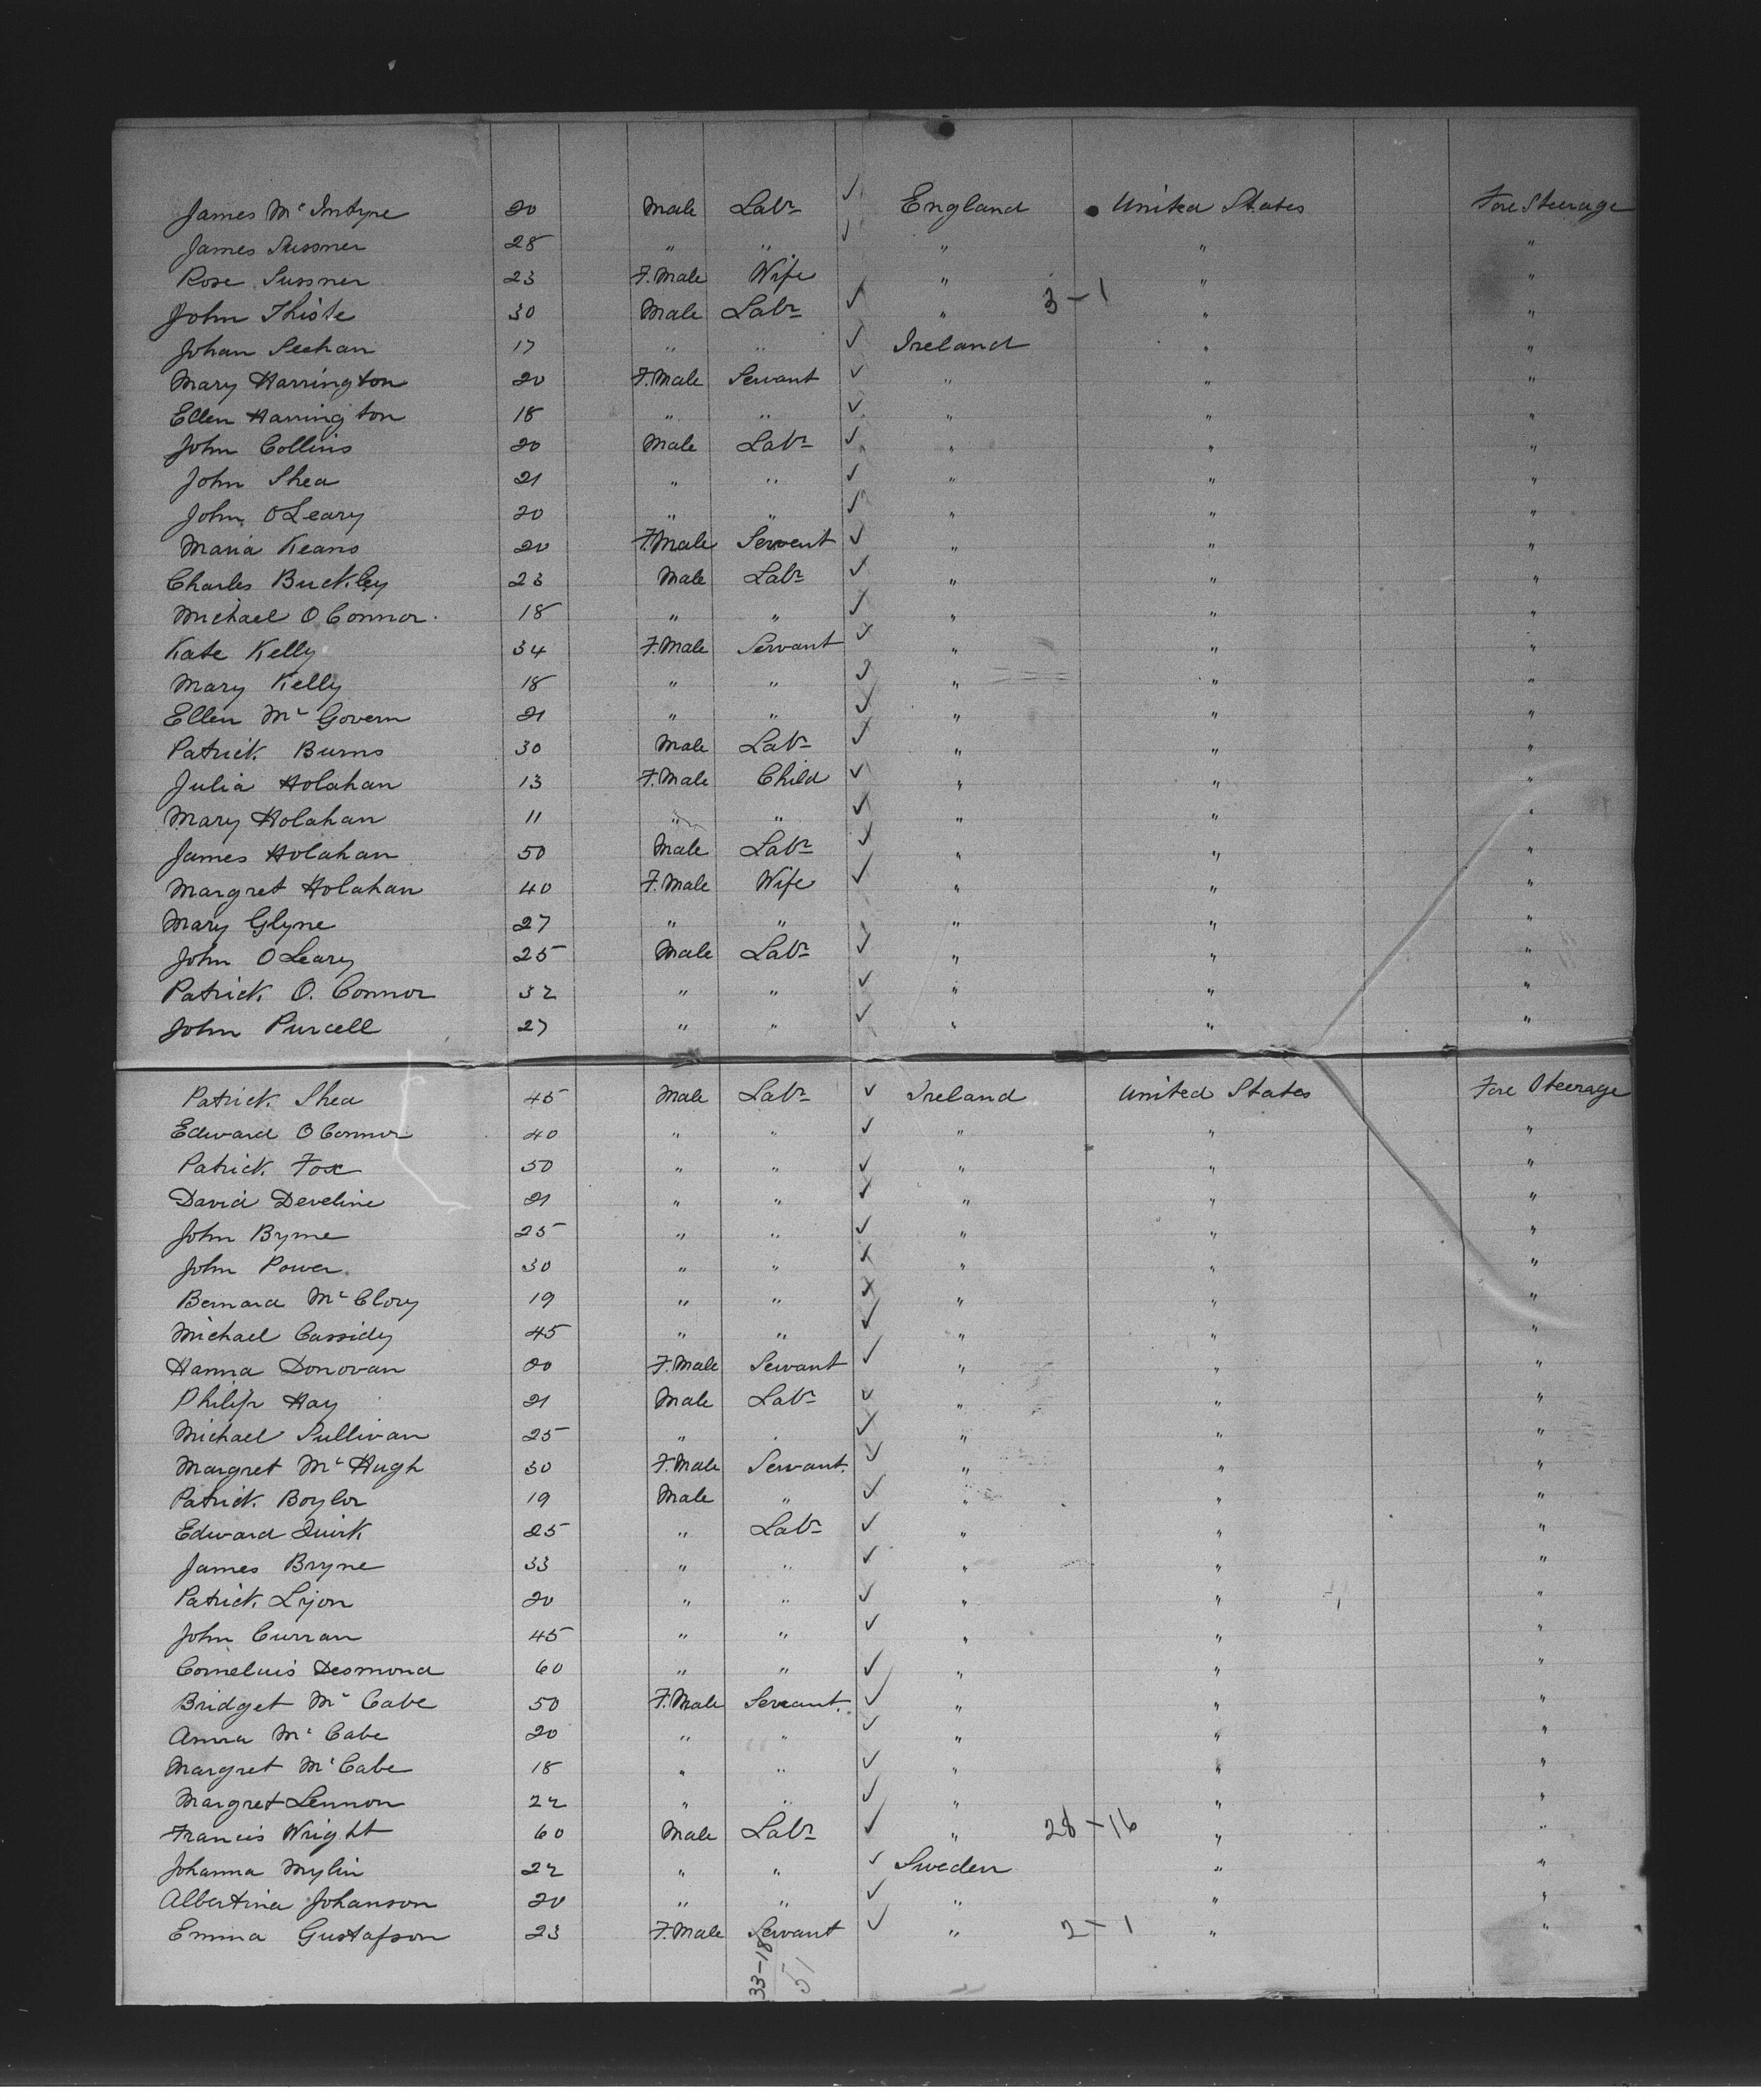 James Mc Intyre 20 Male Labr England United States Fore Steerage
James Sussner 28 " " " " "
Rose Sussner 23 F.Male Wife " " "
John Thiste 30 Male Labr " 3-1 " "
Johan Seehan 17 " " Ireland " "
Mary Harrington 20 F.Male Servant " " "
Ellen Harrington 18 " " " " "
John Collins 20 Male Labr " " "
John Shea 21 " " " " "
John O Leary 20 " " " " "
Maria Keans 20 F.Male Servent " " "
Charles Buckley 23 Male Labr " " "
Michael O Connor 18 " " " " "
Kate Kelly 34 F.Male Servant " " "
Mary Kelly 18 " " " " "
Ellen Mc Govern 21 " " " " "
Patrick Burns 30 Male Labr " " "
Julia Holahan 13 F.Male Child " " "
Mary Holahan 11 " " " " "
James Holahan 50 Male Labr " " "
Margret Holahan 40 F.Male Wife " " "
Mary Glyne 27 " " " " "
John O Leary 25 Male Labr " " "
Patrick O. Connor 32 " " " " "
John Purcell 27 " " " " "
Patrick Shea 45 Male Labr Ireland United States Fore Steerage
Edward O Connor 40 " " " " "
Patrick Fox 50 " " " " "
David Develine 21 " " " " "
John Byrne 25 " " " " "
John Power 30 " " " " "
Bernard Mc Clory 19 " " " " "
Michael Cassidy 45 " " " " "
Hanna Donovan 20 F.Male Servant " " "
Philip Hay 21 Male Labr " " "
Michael Sullivan 25 " " " " "
Margret Mc Hugh 30 F.Male Servant. " " "
Patrick Boylor 19 Male " " " "
Edward Quirk 25 " Labr " " "
James Bryne 33 " " " " "
Patrick Lyon 20 " " " " "
John Curran 45 " " " " "
Corneluis Desmond 60 " " " " "
Bridget Mc Cabe 50 F.Male Servant. " " "
Anna Mc Cabe 20 " " " " "
Margret Mc Cabe 18 " " " " "
Margret Lennon 22 " " " " "
Francis Wright 60 Male Labr " 28-16 " "
Johanna Mylin 22 " " Sweden " "
Albertina Johanson 20 " " " " "
Emma Gustafson 23 F.Male Servant " 2-1 " "
33-18
51